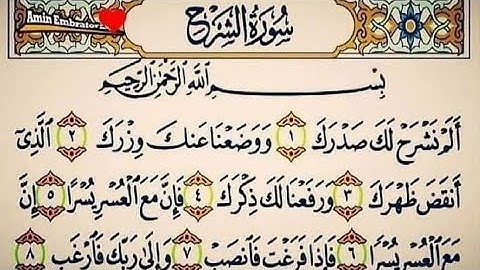 Amin Embrator
سُورَةُ الشَّرْحِ
بِسْمِ اللَّهِ الرَّحْمَٰنِ الرَّحِيمِ
أَلَمْ نَشْرَحْ لَكَ صَدْرَكَ ١ وَوَضَعْنَا عَنكَ وِزْرَكَ ٢ الَّذِي
أَنقَضَ ظَهْرَكَ ٣ وَرَفَعْنَا لَكَ ذِكْرَكَ ٤ فَإِنَّ مَعَ الْعُسْرِ يُسْرًا ٥ إِنَّ
مَعَ الْعُسْرِ يُسْرًا ٦ فَإِذَا فَرَغْتَ فَانصَبْ ٧ وَإِلَىٰ رَبِّكَ فَارْغَب ٨